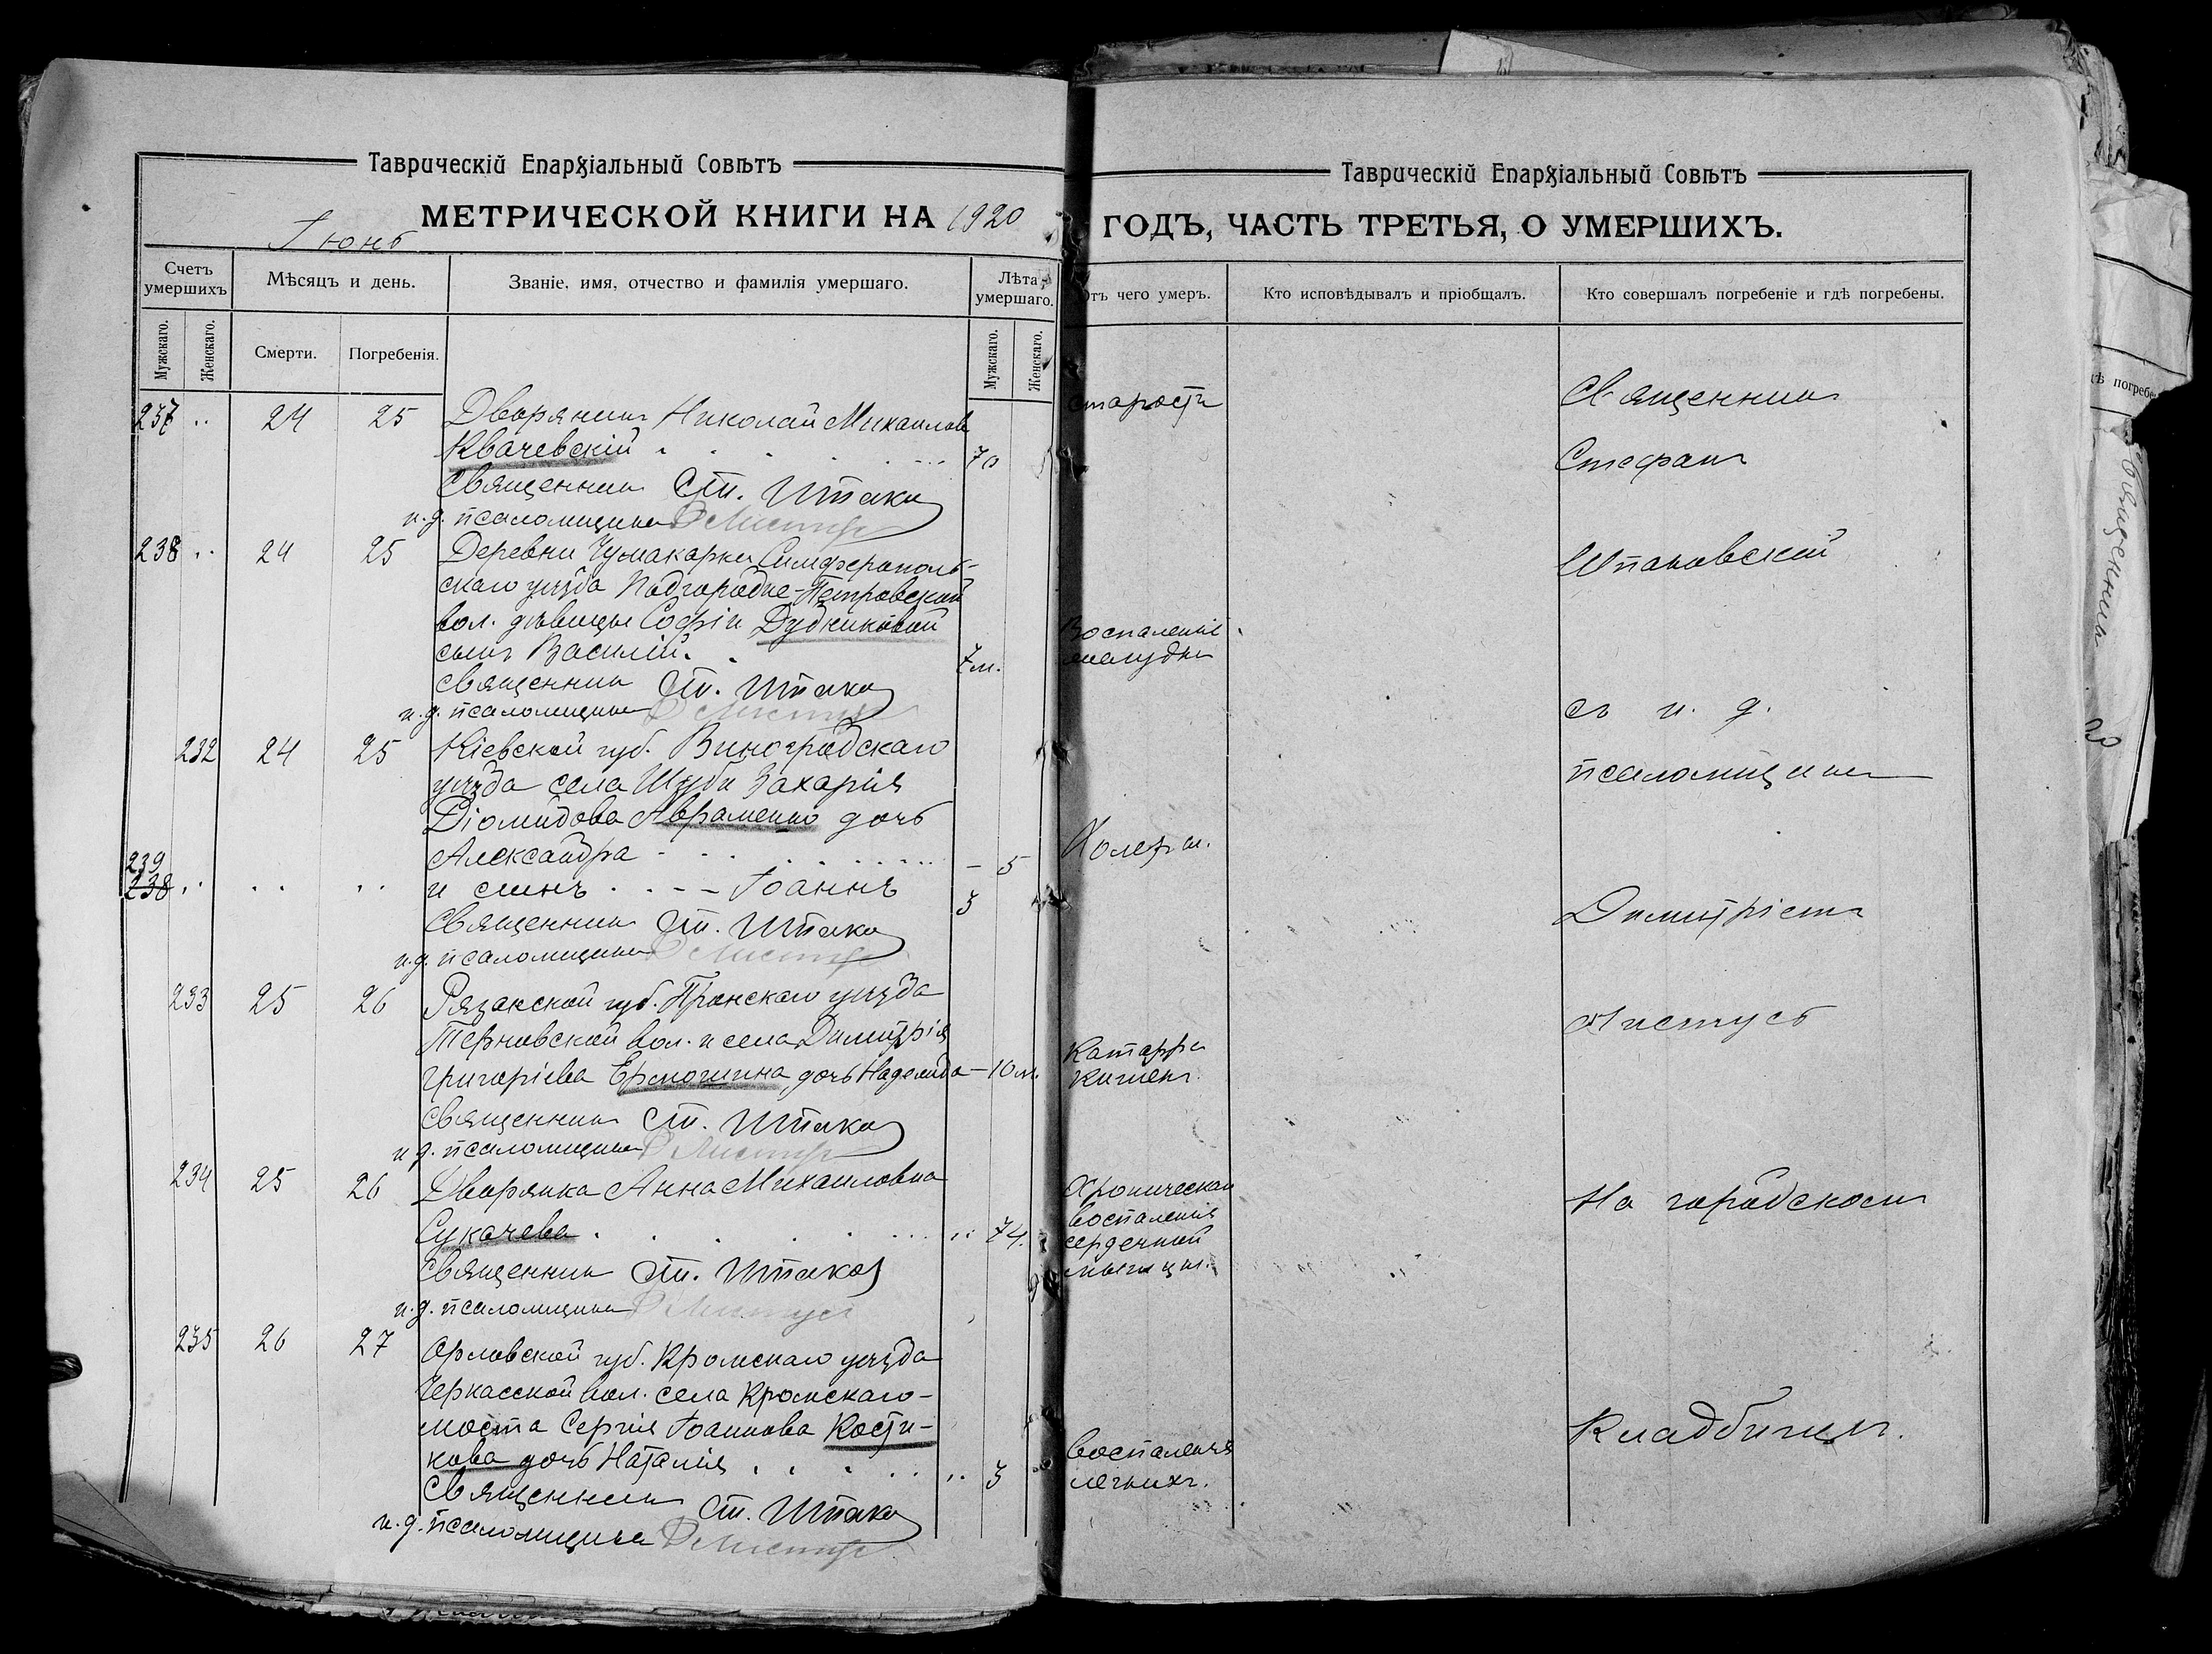 Таврическій Епархіальный Совѣтъ
МЕТРИЧЕСКОЙ КНИГИ НА 1920
Іюнь
Счетъ умершихъ
Мѣсяцъ и день.
Званіе, имя, отчество и фамилія умершаго.
Лѣта умершаго.
Мужскаго.
Женскаго.
Смерти.
Погребенія.
Мужскаго.
Женскаго.
237 .. 24 25 Дворянинъ Николай Михаилов
Квачевскій . . . . 70
Священникъ Ст. Шпако
и.д. псаломщика Д Листус
238 .. 24 25 Деревни Чумакарки Симферополь-
скаго уѣзда Подгородне-Петровской
вол. дѣвицы Софіи Дудниковой
сынъ Василій. . 7 м.
Священникъ Ст. Шпако
и.д. псаломщика Д Листус
232 24 25 Кіевской губ. Виноградскаго
уѣзда села Шубы Захарія
Діомидова Авраменко дочь
Александра - . . . . - 5
239
238 .. .. .. и сынъ . . - - Іоаннъ 3
Священникъ Ст. Шпако
и.д. псаломщика Д Листус
233 25 26 Рязанской губ. Пронскаго уѣзда
Терновской вол. и села Димитрія
Григоріева Ермошина дочь Надежда - 10 м.
Священникъ Ст. Шпако
и.д. псаломщика Д Листус
234 25 26 Дворянка Анна Михаиловна
Сукачева . . . . . .. 74.
Священникъ Ст. Шпако
и.д. псаломщика Д Листус
235 26 27 Орловской губ. Кромскаго уѣзда
Черкасской вол. села Кромскаго-
моста Сергія Іоаннова Кости-
кова дочь Наталія . . . . .. 3
Священникъ Ст. Шпако
и.д. псаломщика Д Листус
Таврическій Епархіальный Совѣтъ
ГОДЪ, ЧАСТЬ ТРЕТЬЯ, О УМЕРШИХЪ.
Отъ чего умеръ.
Кто исповѣдывалъ и пріобщалъ.
Кто совершалъ погребеніе и гдѣ погребены.
старости
Воспаленіе
желудка
Холеры.
Катарра
кишекъ.
Хроническая
воспаленія
сердечной
мышцы.
воспаленія
легкихъ.
Священникъ
Стефанъ
Шпаковскій
съ и. д.
псаломщика
Димитріемъ
Листусъ
На городскомъ
Кладбищѣ.
дѣ погребе
Священникъ
20